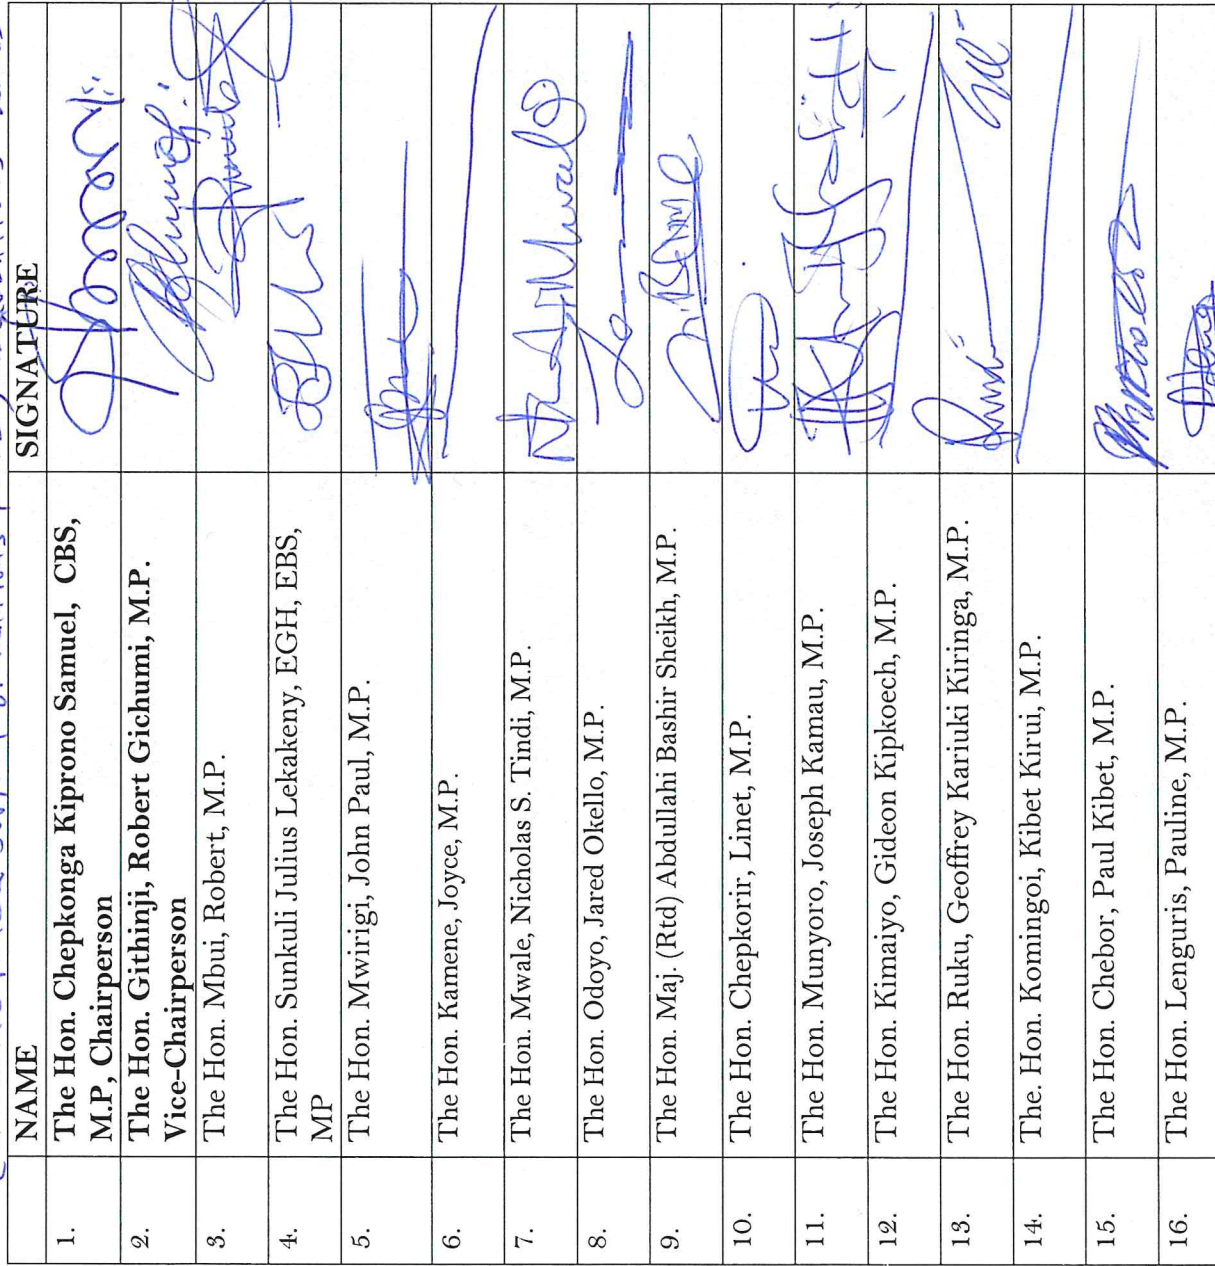 NAME SIGNATURE
1. The Hon. Chepkonga Kiprono Samuel, CBS,
M.P, Chairperson
2. The Hon. Githinji, Robert Gichumi, M.P.
Vice-Chairperson
3. The Hon. Mbui, Robert, M.P.
4. The Hon. Sunkuli Julius Lekakeny, EGH, EBS,
MP
5. The Hon. Mwirigi, John Paul, M.P.
6. The Hon. Kamene, Joyce, M.P.
7. The Hon. Mwale, Nicholas S. Tindi, M.P.
8. The Hon. Odoyo, Jared Okello, M.P.
9. The Hon. Maj. (Rtd) Abdullahi Bashir Sheikh, M.P.
10. The Hon. Chepkorir, Linet, M.P.
11. The Hon. Munyoro, Joseph Kamau, M.P.
12. The Hon. Kimaiyo, Gideon Kipkoech, M.P.
13. The Hon. Ruku, Geoffrey Kariuki Kiringa, M.P.
14. The. Hon. Komingoi, Kibet Kirui, M.P.
15. The Hon. Chebor, Paul Kibet, M.P.
16. The Hon. Lenguris, Pauline, M.P.